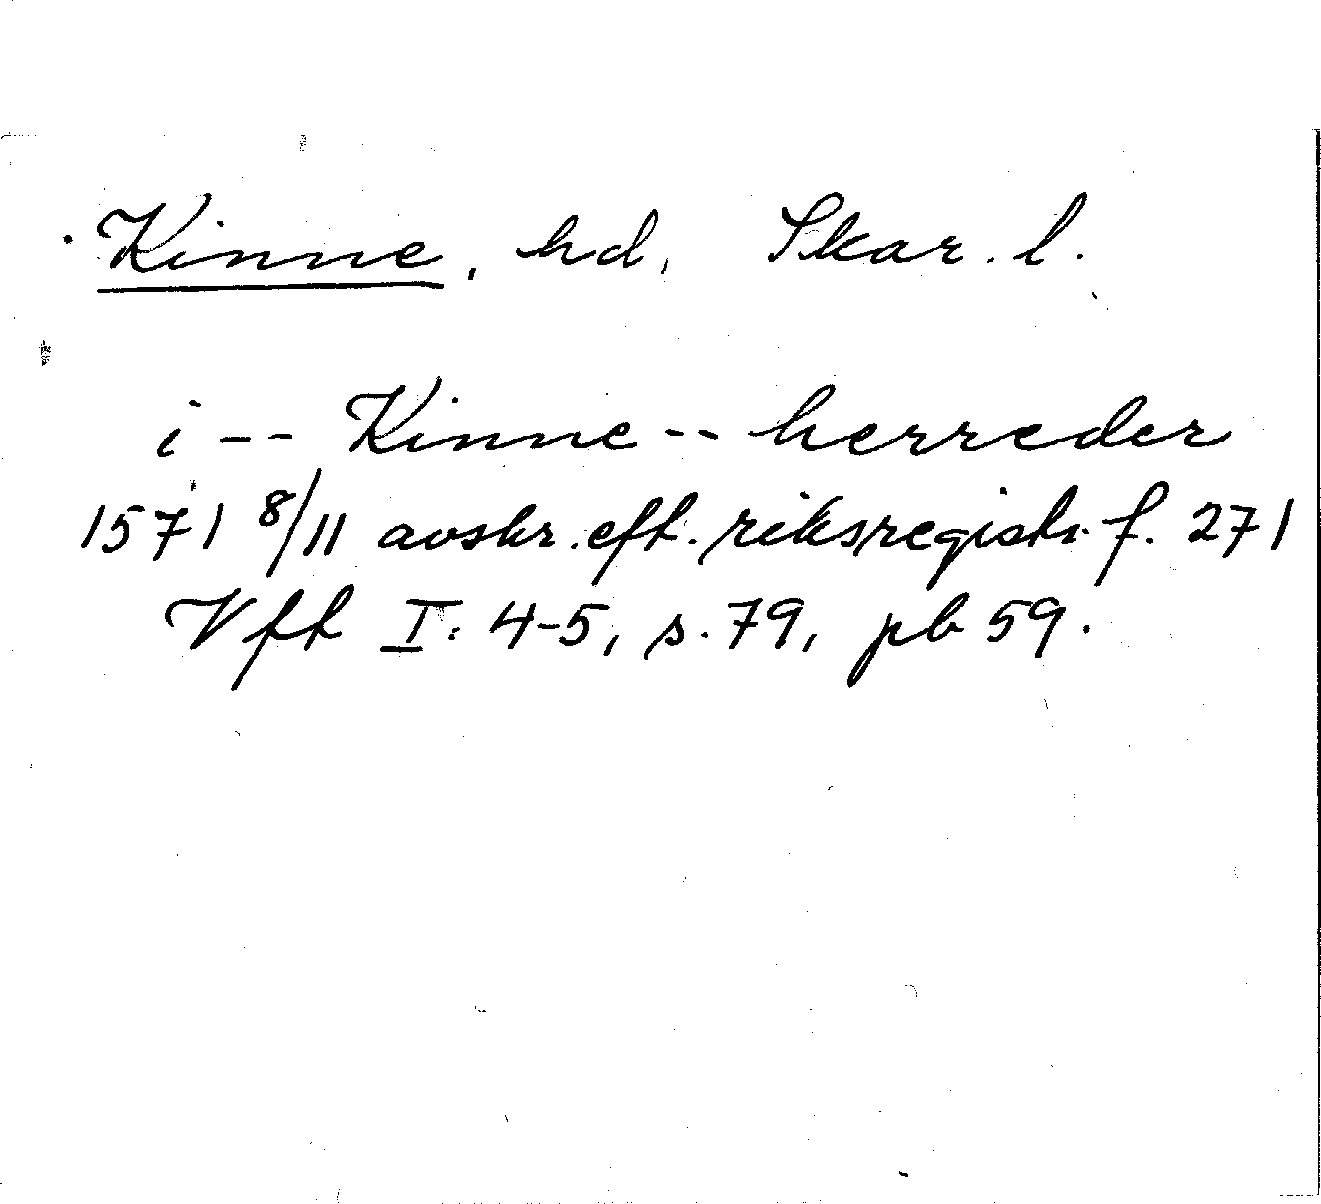 Kinne, hd, Skar. l.
i -- Kinne -- herreder
1571 8/11 avskr. eft. riksregistr. f. 271
Vft I: 4-5, s. 79, pb 59.